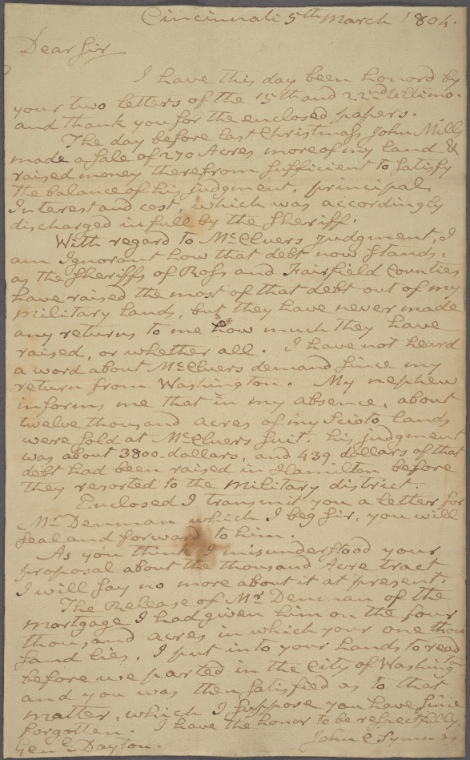 Cincinnati 5th March 1804.
Dear Sir
I have this day been honord by
your two letters of the 15th and 22nd ultimo.
and thank you for the enclosed papers.
The day before last Christmass John Mills
made a sale of 270 Acres more of my land &
raised money therefrom sufficient to satisfy
the balance of his judgment, principal
Interest and cost which was accordingly
discharged in full by the Sheriff.
With regard to McCluers judgment, I
am Ignorant how that debt now stands,
as the Sheriffs of Ross and Fairfield Counties
have raised the most of that debt out of my
military lands, but they have never made
any returns to me how much they have
raised, or whether all. I have not heard
a word about McCluers demand since my
return from Washington. My nephew
informs me that in my absence, about
twelve thousand acres of my Scioto lands
were sold at McCluers suit. his judgment
was about 3800. dollars, and 439 dollars of that
debt had been raised in Hamilton before
they resorted to the military district.
Enclosed I transmit you a letter for
Mr Denman which I beg Sir, you will
seal and forward to him.
As you think I misunderstood your
proposal about the thousand Acre tract
I will say no more about it at present.
The Release of Mr Denman of the
mortgage I had given him on the four
thousand acres in which your one thou
sand lies, I put into your hands to read
before we parted in the City of Washington
and you was then satisfied as to that
matter, which I suppose you have since
forgotten. I have the honor to be respectfully
Genl Dayton. John C Symmes